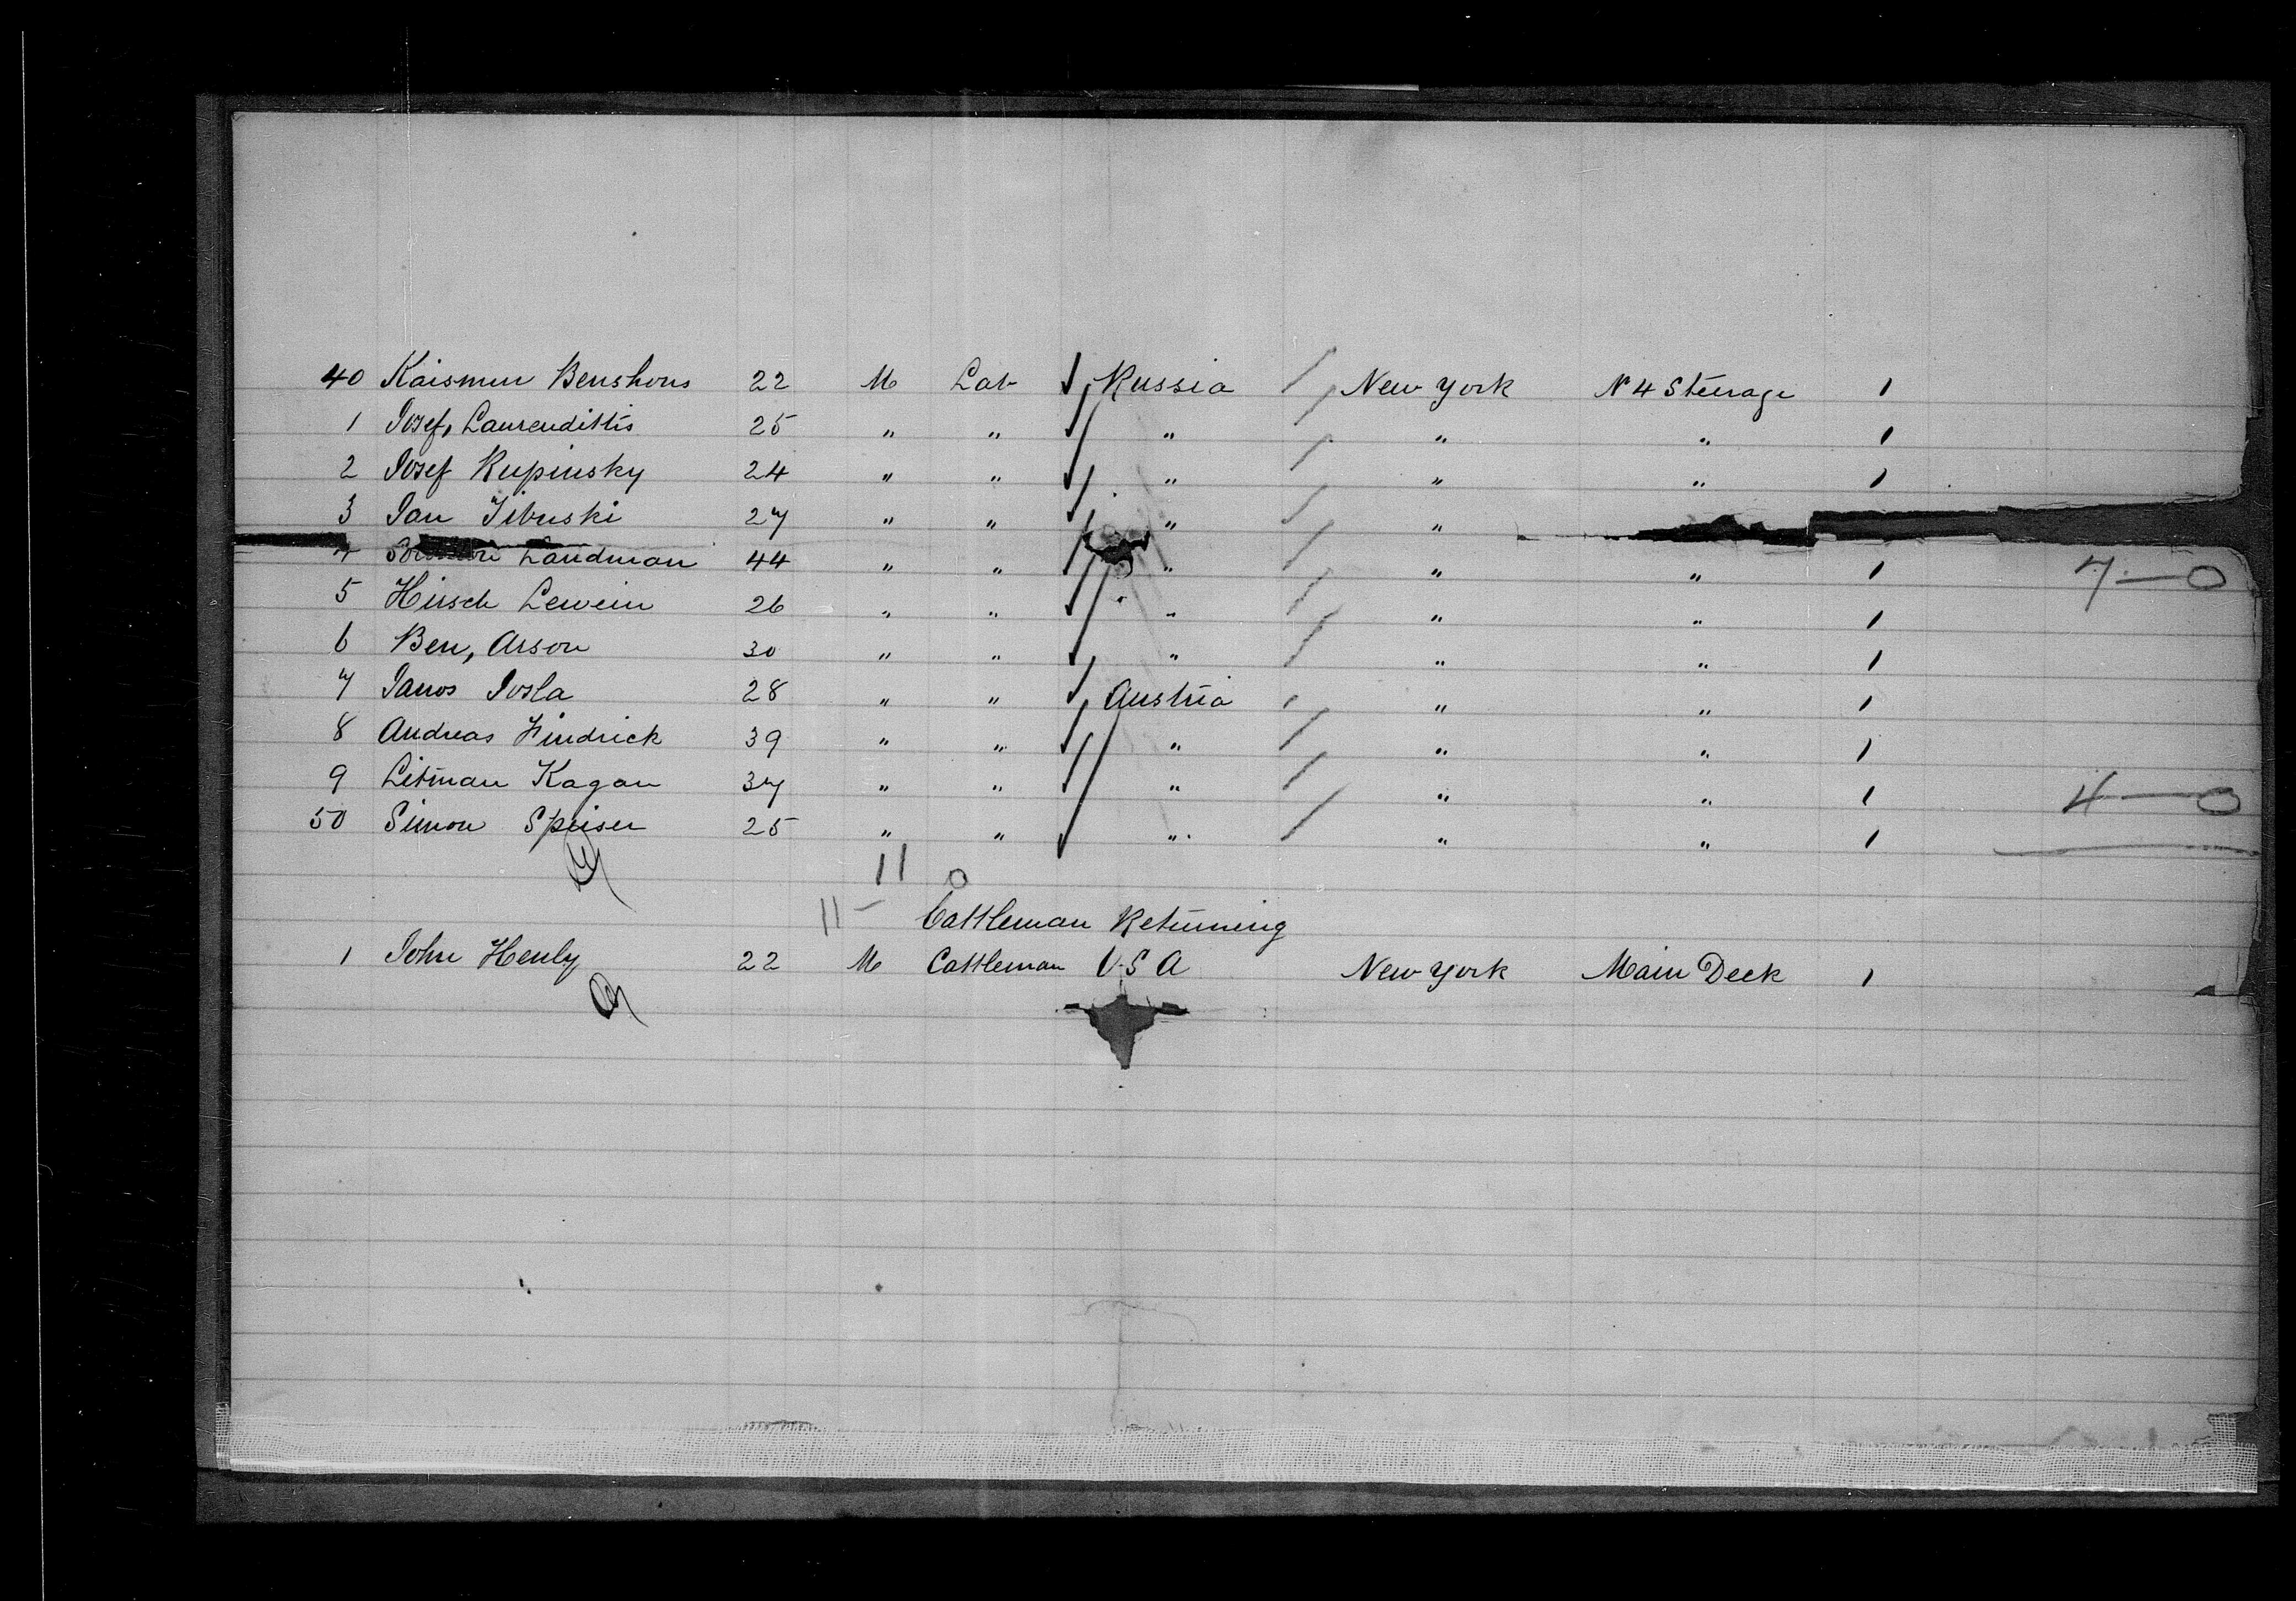 40 Kaismun Benshons 22 M Lab Russia New York N 4 Steerage 1
1 Josef, Laurendittis 25 " " " " " 1
2 Josef Rupinsky 24 " " " " " 1
3 Jan 27 " " " "
4 Landman 44 " " " " " 1
7—0
5 Hirsch Lewein 26 " " " " " 1
6 Ben, Arson 30 " " " " " 1
7 Janos Josla 28 " " Austria " " 1
8 Andreas Hindrick 39 " " " " " 1
9 Litman Kagan 37 " " " " " 1
4—0
50 Simon Speiser 25 " " " " " 1
11 0
11 — Cattleman Returning
1 John Henly 22 M Cattleman U.S A New York Main Deck 1